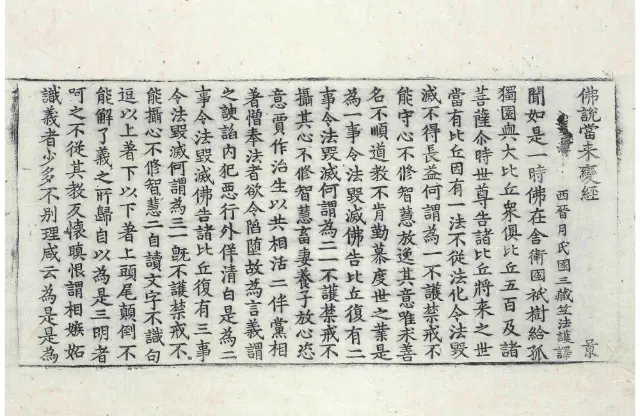 佛說當來變經
西晉月氏國三藏竺法護譯 景
聞如是一時佛在舍衛國祇樹給孤
獨園與大比丘眾俱比丘五百及諸
菩薩尒時世尊告諸比丘將來之世
當有比丘因有一法不從法化令法毀
滅不得長益何謂為一不護禁戒不
能守心不修智慧放逸其意唯求善
名不順道教不肯勤慕度世之業是
為一事令法毀滅佛告比丘復有二
事令法毀滅何謂為二一不護禁戒不
攝其心不修智慧畜妻養子放心恣
意賈作治生以共相活二伴黨相
著憎奉法者欲令陷墮故為言義謂
之諛諂內犯惡行外佯清白是為二
事令法毀滅佛告諸比丘復有三事
令法毀滅何謂為三一旣不護禁戒不
能攝心不修智慧二自讀文字不識句
逗以上著下以下著上頭尾顛倒不
能解了義之所歸自以為是三明者
呵之不從其教反懷瞋恨謂相嫉妬
識義者少多不別理咸云為是是為